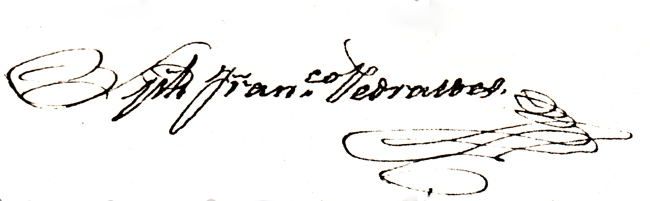 Jph Fran.co Pedralbes.